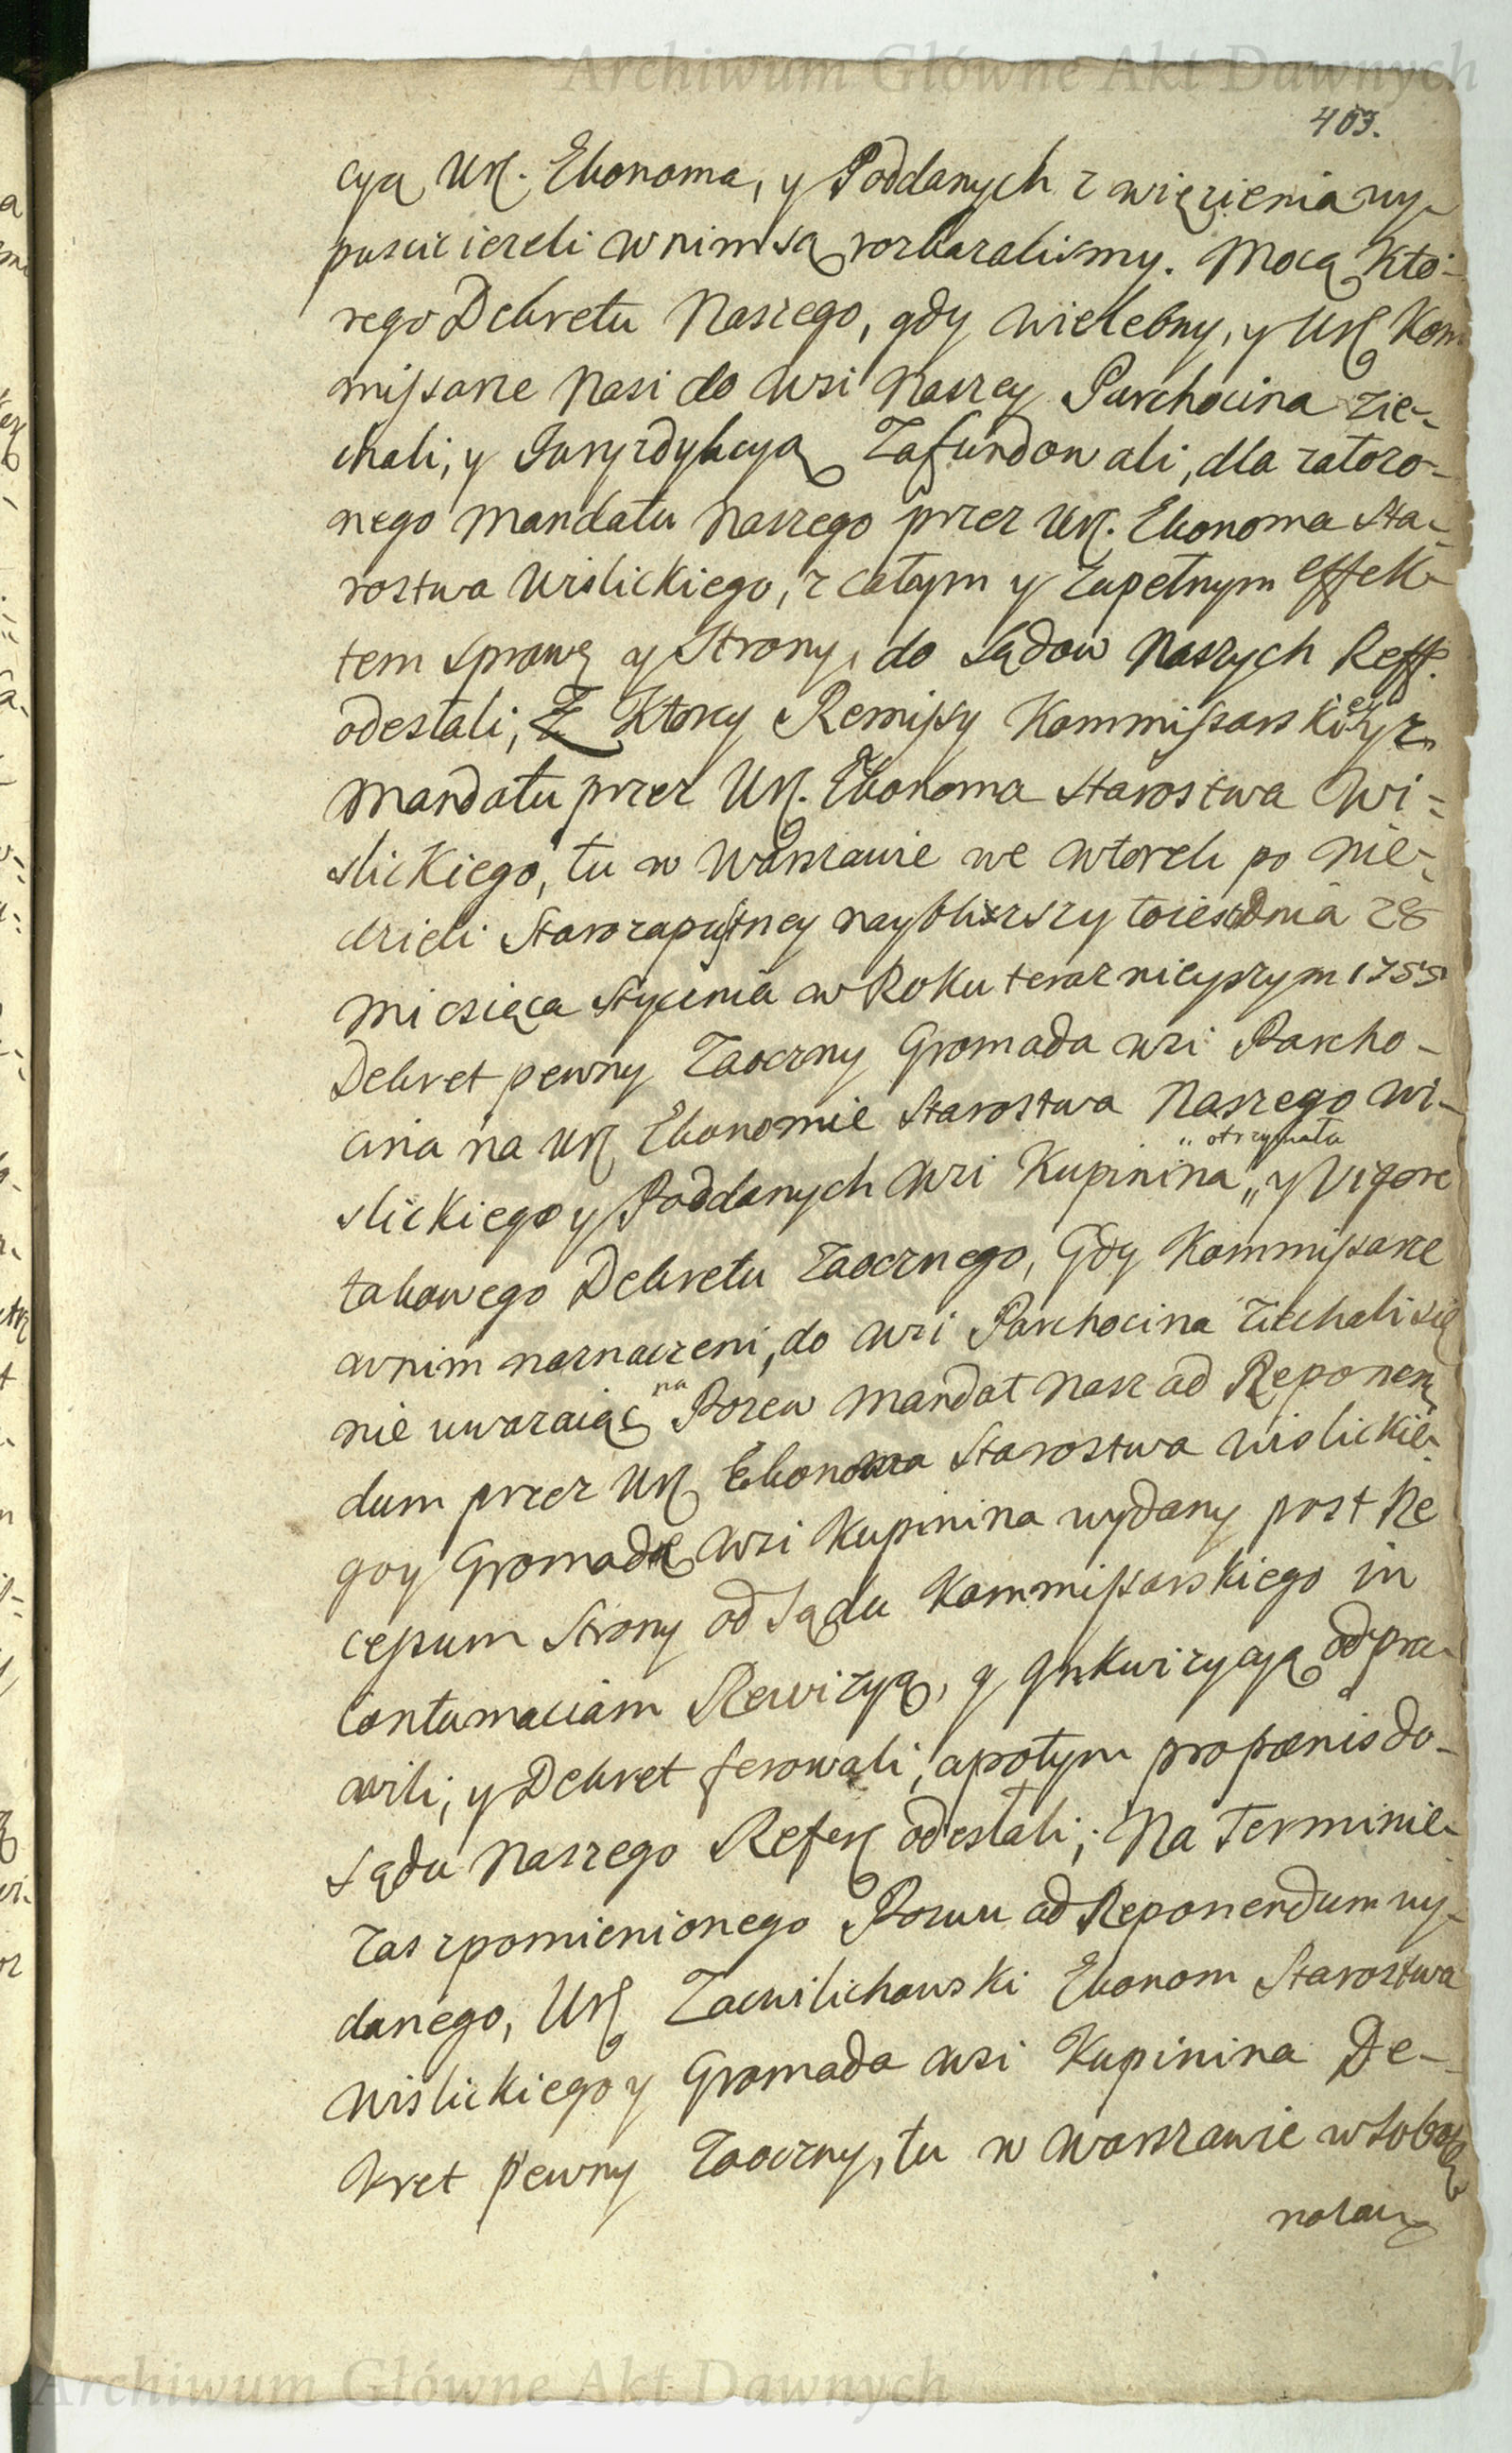 Archiwum Główne Akt Dawnych
403.
cyą Ur. Ekonoma, y Poddanych z więzienia wy-
puscic iezeli w nim są rozkazalismy. Mocą kto-
rego Dekretu Naszego, gdy Wielebny, y Ur Kom
missarze Nasi do Wsi Naszey Parchocina zie-
chali, y Jurysdykcyą Zafundowali, dla załozo-
nego Mandatu Naszego przez Ur. Ekonoma Sta-
rostwa Wislickiego, z całym y zupełnym effek-
tem sprawę y Strony, do Sądow Naszych Reff.
odesłali, Z Ktorey Remissy Kommissarskiey z
Mandatu przez Ur. Ekonoma Starostwa Wi-
slickiego, tu w Warszawie we wtorek po Nie-
dzieli Starozapustney nayblizszy toiest Dnia 28
Miesiąca Stycznia w Roku teraznieyszym 1755
Dekret pewny Zaoczny Gromada wsi Parcho-
cina na Ur Ekonomie Starostwa Naszego Wi-
slickiego y Poddanych Wsi Kupinina „ otrzymała „ y Vigore
takowego Dekretu Zaocznego, Gdy Kommissarze
w nim naznaczeni, do Wsi Parchocina Ziechali się
nie uwazaiąc na Pozew Mandat Nasz ad Reponen
dum przez Ur Ekonoma Starostwa Wislickie-
go y Gromadę Wsi Kupinina wydany post Re
cessum Strony od Sądu Kommissarskiego in
Contumaciam Rewizyą, y Inkwizycyą odpra-
wili, y Dekret ferowali, a potym pro pænis do-
Sądu Naszego Refer odesłali; Na Terminie
Zas zpomienionego Pozwu ad Reponendum wy-
danego, Ur Zacwilichowski Ekonom Starostwa
Wislickiego y Gromada Wsi Kupinina De-
kret pewny Zaoczny, tu w Warszawie w Sobotę
Archiwum Główne Akt Dawnych